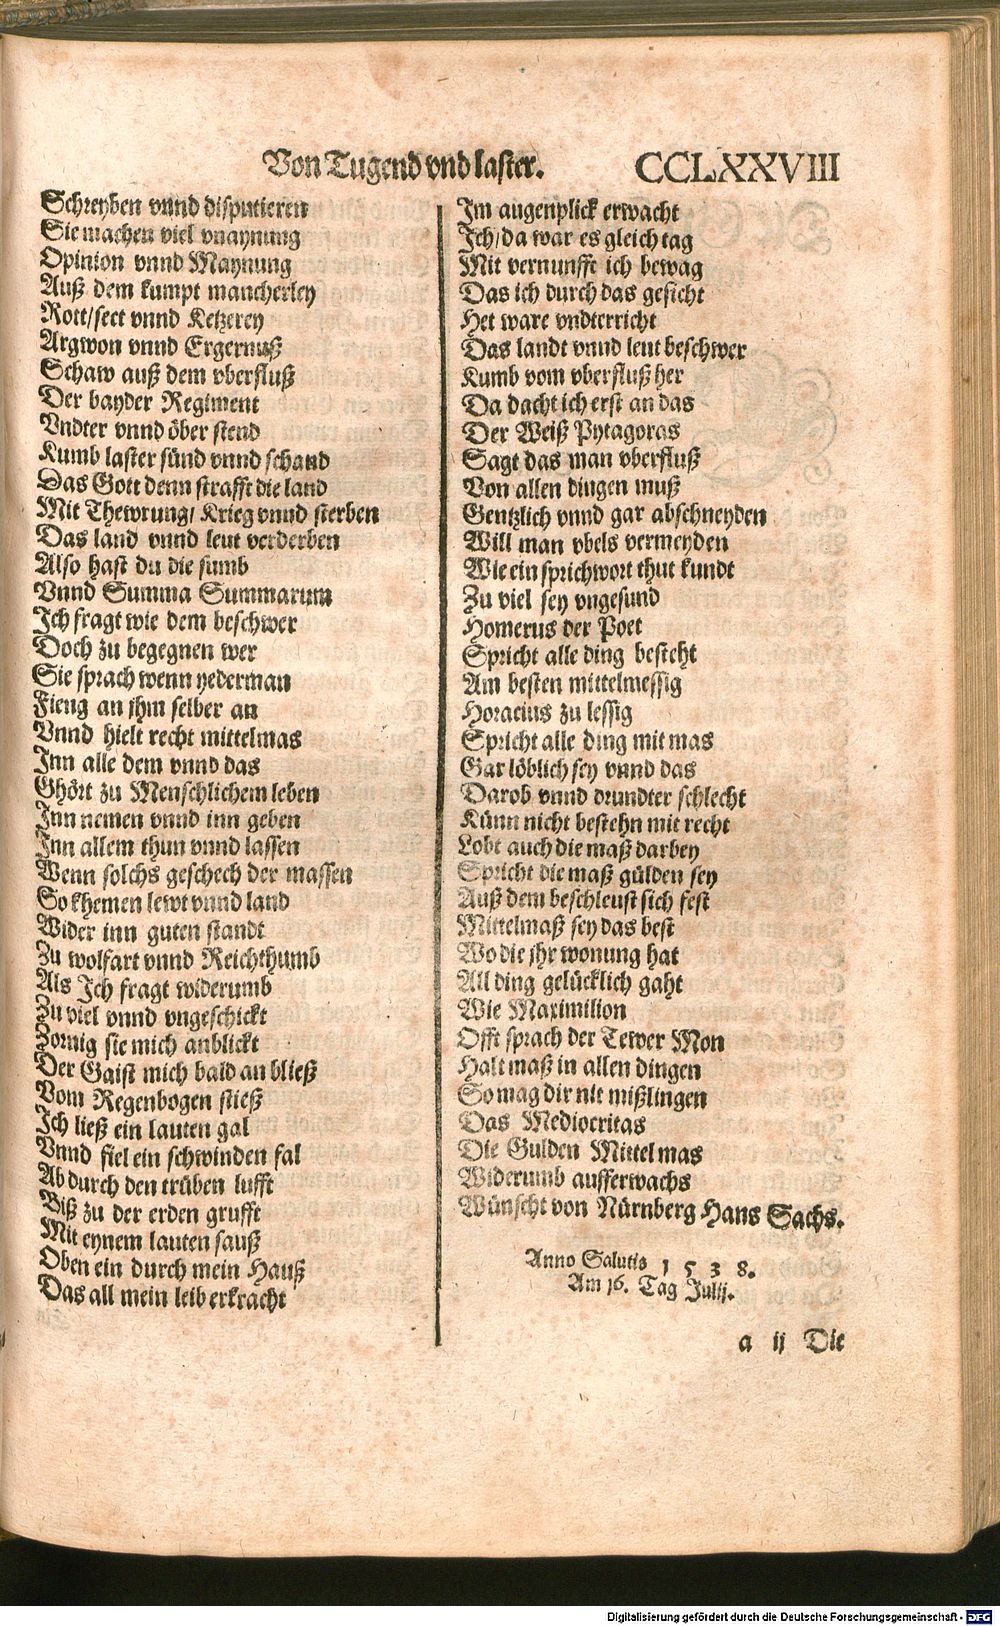 Von Tugend vnd laster. CCLXXVIII
Schreyben vnnd disputieren
Sie machen viel vnaynung
Opinion vnnd Maynung
Auß dem kumpt mancherley
Rott/sect vnnd Ketzerey
Argwon vnnd Ergernuß
Schaw auß dem vberfluß
Der bayder Regiment
Vndter vnnd öber stend
Kumb laster sünd vnnd schand
Das Gott denn strafft die land
Mit Thewrung/ Krieg vnnd sterben
Das land vnnd leut verderben
Also hast du die sumb
Vnnd Summa Summarum
Ich fragt wie dem beschwer
Doch zu begegnen wer
Sie sprach wenn yederman
Fieng an jhm selber an
Vnnd hielt recht mittelmas
Inn alle dem vnnd das
Ghört zu Menschlichem leben
Inn nemen vnnd inn geben
Inn allem thun vnnd lassen
Wenn solchs geschech der massen
So khemen lewt vnnd land
Wider inn guten standt
Zu wolfart vnnd Reichthumb
Als Ich fragt widerumb
Zu viel vnnd vngeschickt
Zornig sie mich anblickt
Der Gaist mich bald an bließ
Vom Regenbogen stieß
Ich ließ ein lauten gal
Vnnd fiel ein schwinden fal
Ab durch den trüben lufft
Biß zu der erden grufft
Mit eynem lauten sauß
Oben ein durch mein Hauß
Das all mein leib erkracht
Im augenplick erwacht
Ich/da war es gleich tag
Mit vernunfft ich bewag
Das ich durch das gesicht
Het ware vndterricht
Das landt vnnd leut beschwer
Kumb vom vberfluß her
Da dacht ich erst an das
Der Weiß Pytagoras
Sagt das man vberfluß
Von allen dingen muß
Gentzlich vnnd gar abschneyden
Will man vbels vermeyden
Wie ein sprichwort thut kundt
Zu viel sey vngesund
Homerus der Poet
Spricht alle ding besteht
Am besten mittelmessig
Horacius zu lessig
Spricht alle ding mit mas
Gar löblich sey vnnd das
Darob vnnd drundter schlecht
Künn nicht bestehn mit recht
Lobt auch die maß darbey
Spricht die maß gülden sey
Auß dem beschleust sich fest
Mittelmaß sey das best
Wo die jhr wonung hat
All ding gelücklich gaht
Wie Maximilion
Offt sprach der Tewer Mon
Halt maß in allen dingen
So mag dir nit mißlingen
Das Mediocritas
Die Gulden Mittel mas
Widerumb aufferwachs
Wünscht von Nürnberg Hans Sachs.
Anno Salutis 1 5 3 8.
Am 16. Tag Julij.
a ij Die
Digitalisierung gefördert durch die Deutsche Forschungsgemeinschaft - DFG